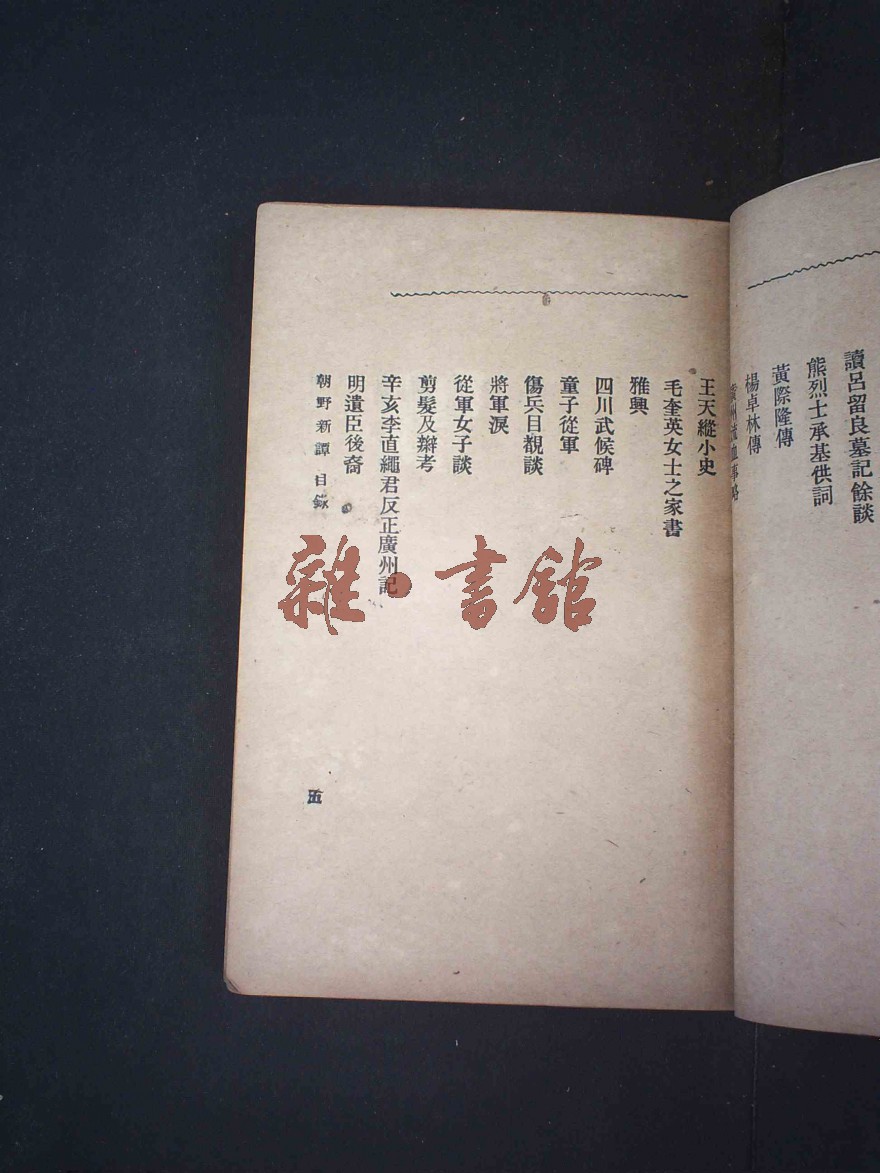 讀呂留良墓記餘談
熊烈士承基供詞
黃際隆傳
楊卓林傳
廣州流血事略
王天縱小史
毛奎英女士之家書
雅興
四川武候碑
童子從軍
傷兵目覩談
將軍淚
從軍女子談
剪髮及辮考
辛亥李直繩君反正廣州記
明遺臣後裔
朝野新譚 目錄
五
雜·書館